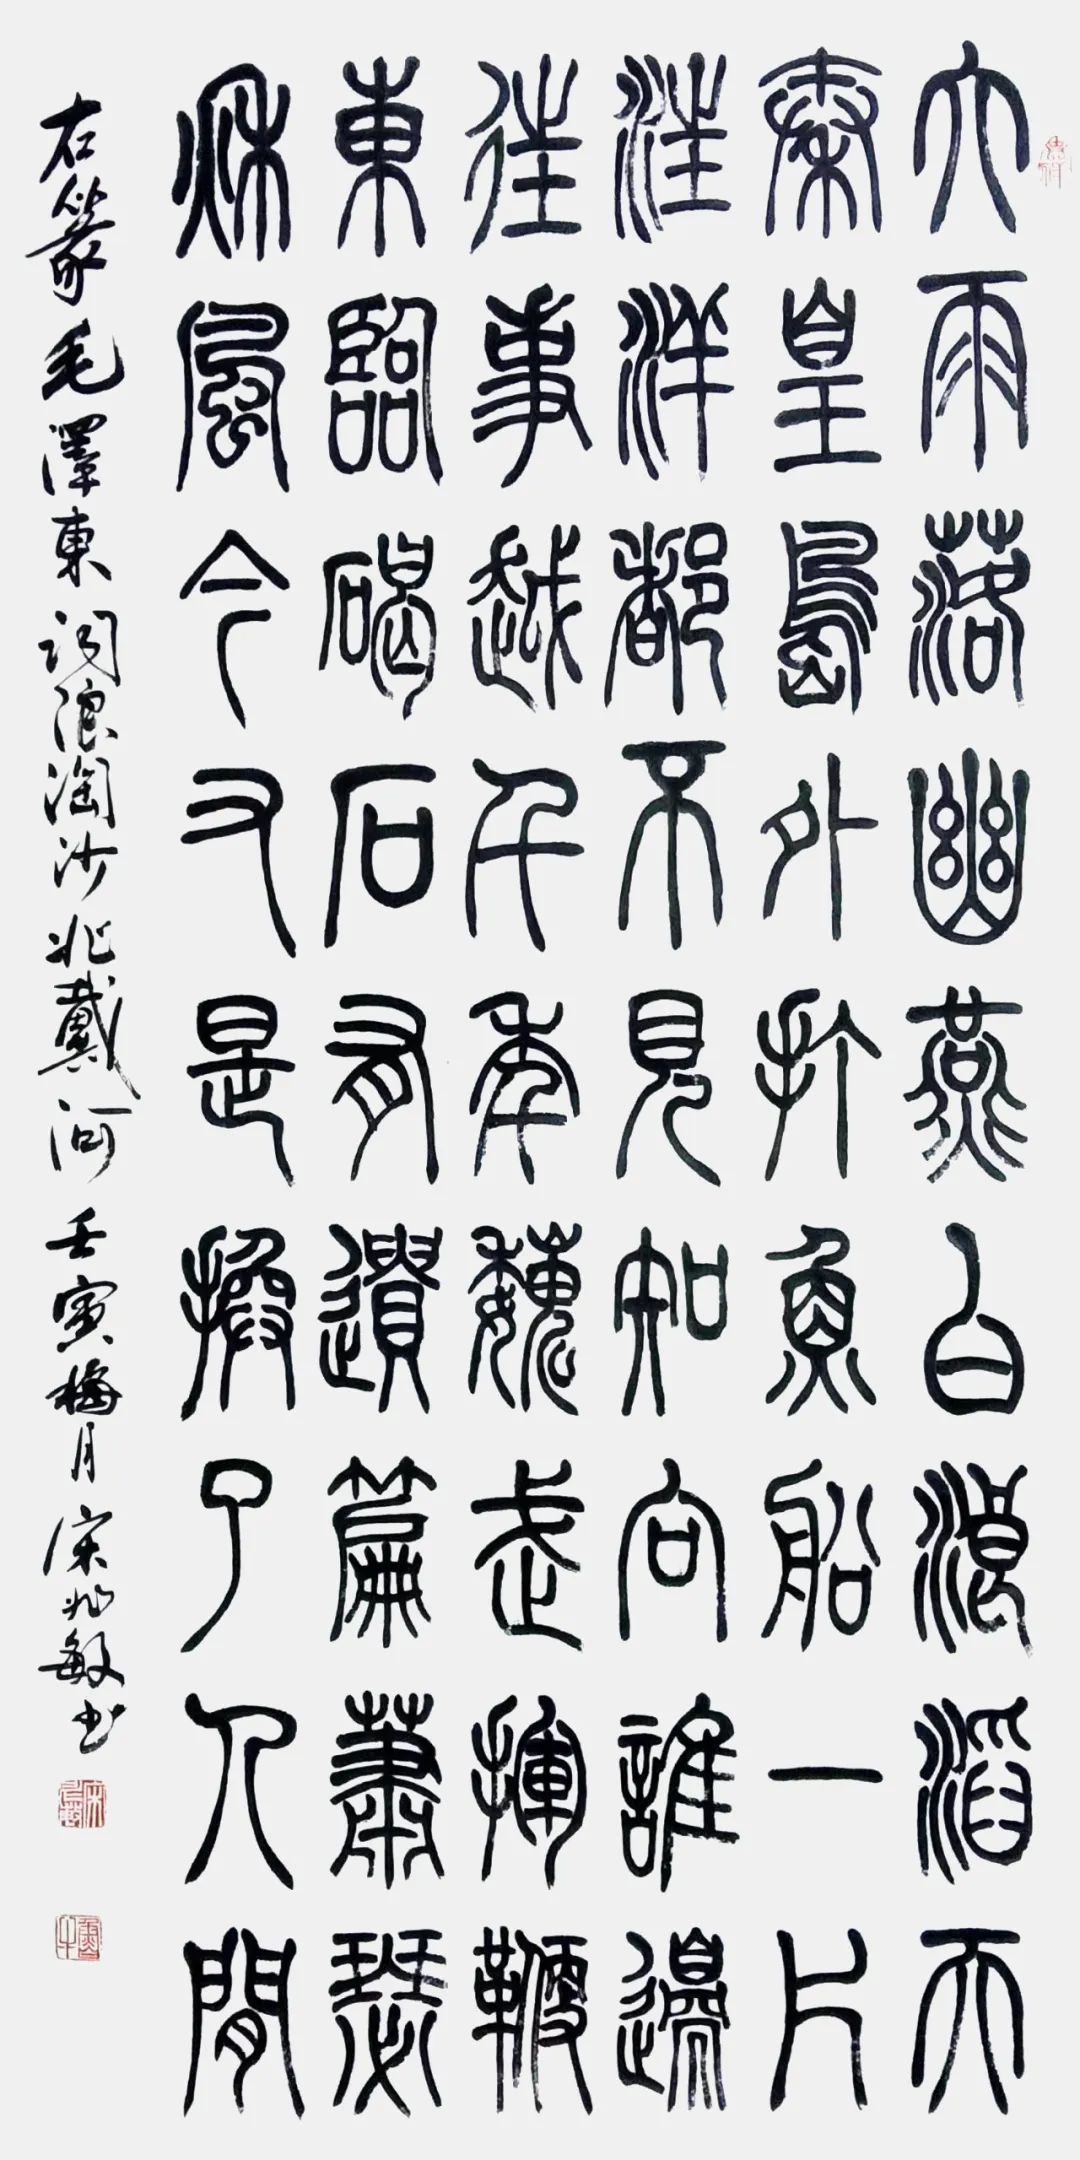 大雨落幽燕白浪滔天
秦皇島外打魚船一片
汪洋都不見知向誰邊
往事越千年魏武揮鞭
東臨碣石有遺篇蕭瑟
秋風今又是換了人間
右篆毛澤東詞浪淘沙北戴河 壬寅梅月宋兆敏书